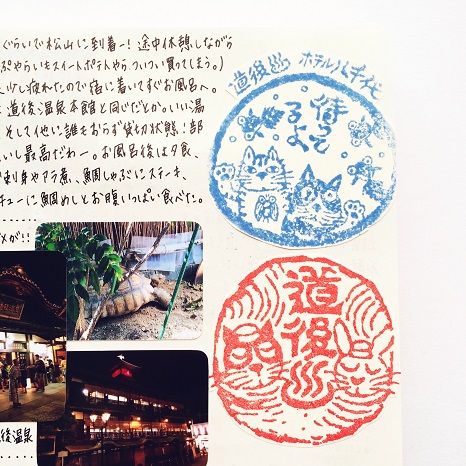 ぐらいで松山に到着ー! 途中休憩しながら
ぷやらいもスイートポテトやらついつい買ってしまう。)
少し疲れたので宿に着いてすぐお風呂へ。
道後温泉本館と同じだとか。いい湯
そして他に誰もおらず貸切状態!部
いし最高だわー。お風呂後は夕食、
刺身やアラ煮、鯛しゃぶにステーキ、
チューに鯛めしとお腹いっぱい食べた。
メが!!
後温泉
道後 ホテル八千代
待って
るよ
道
後